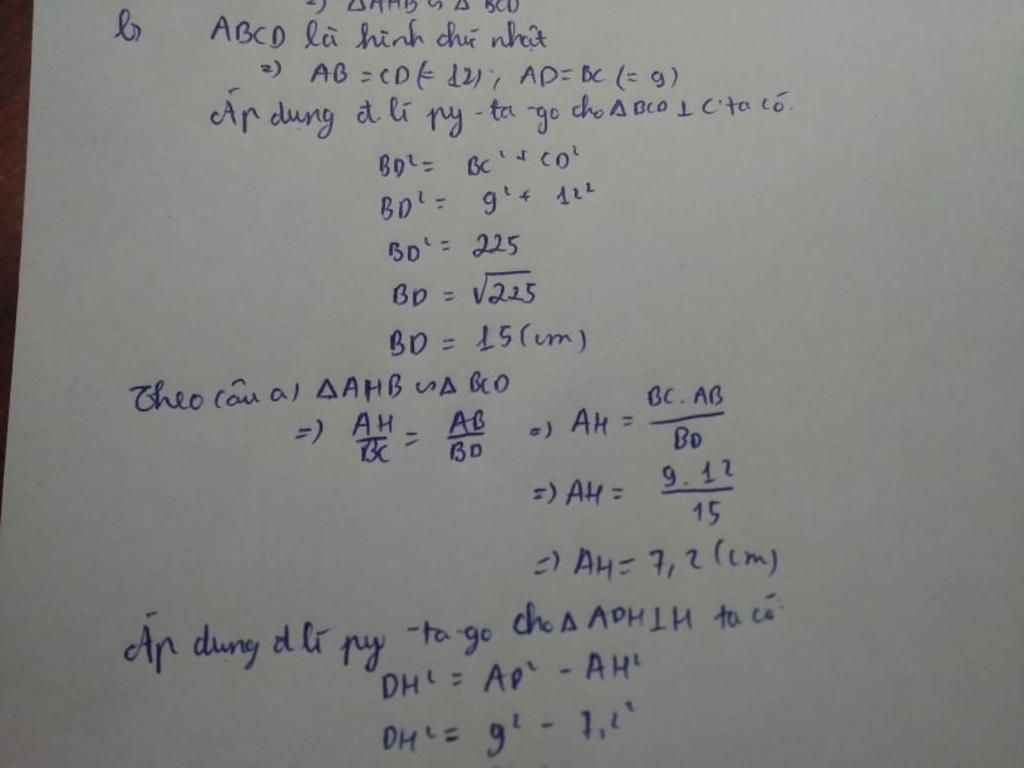 =) ΔAHB ∽ Δ BCD
b, ABCD là hình chữ nhật
=) AB = CD (= 12); AD = BC (= 9)
Áp dụng đ. lí py-ta-go cho ΔBCD ⊥ C ta có.
BD² = BC² + CD²
BD² = 9² + 12²
BD² = 225
BD = √225
BD = 15 (cm)
Theo câu a) ΔAHB ∽ Δ BCD
=) AH/BC = AB/BD =) AH = BC. AB/BD
=) AH = 9. 12/15
=) AH = 7,2 (cm)
Áp dụng đ lí py-ta-go cho Δ ADH ⊥ H ta có:
DH² = AD² - AH²
DH² = 9² - 7,2²